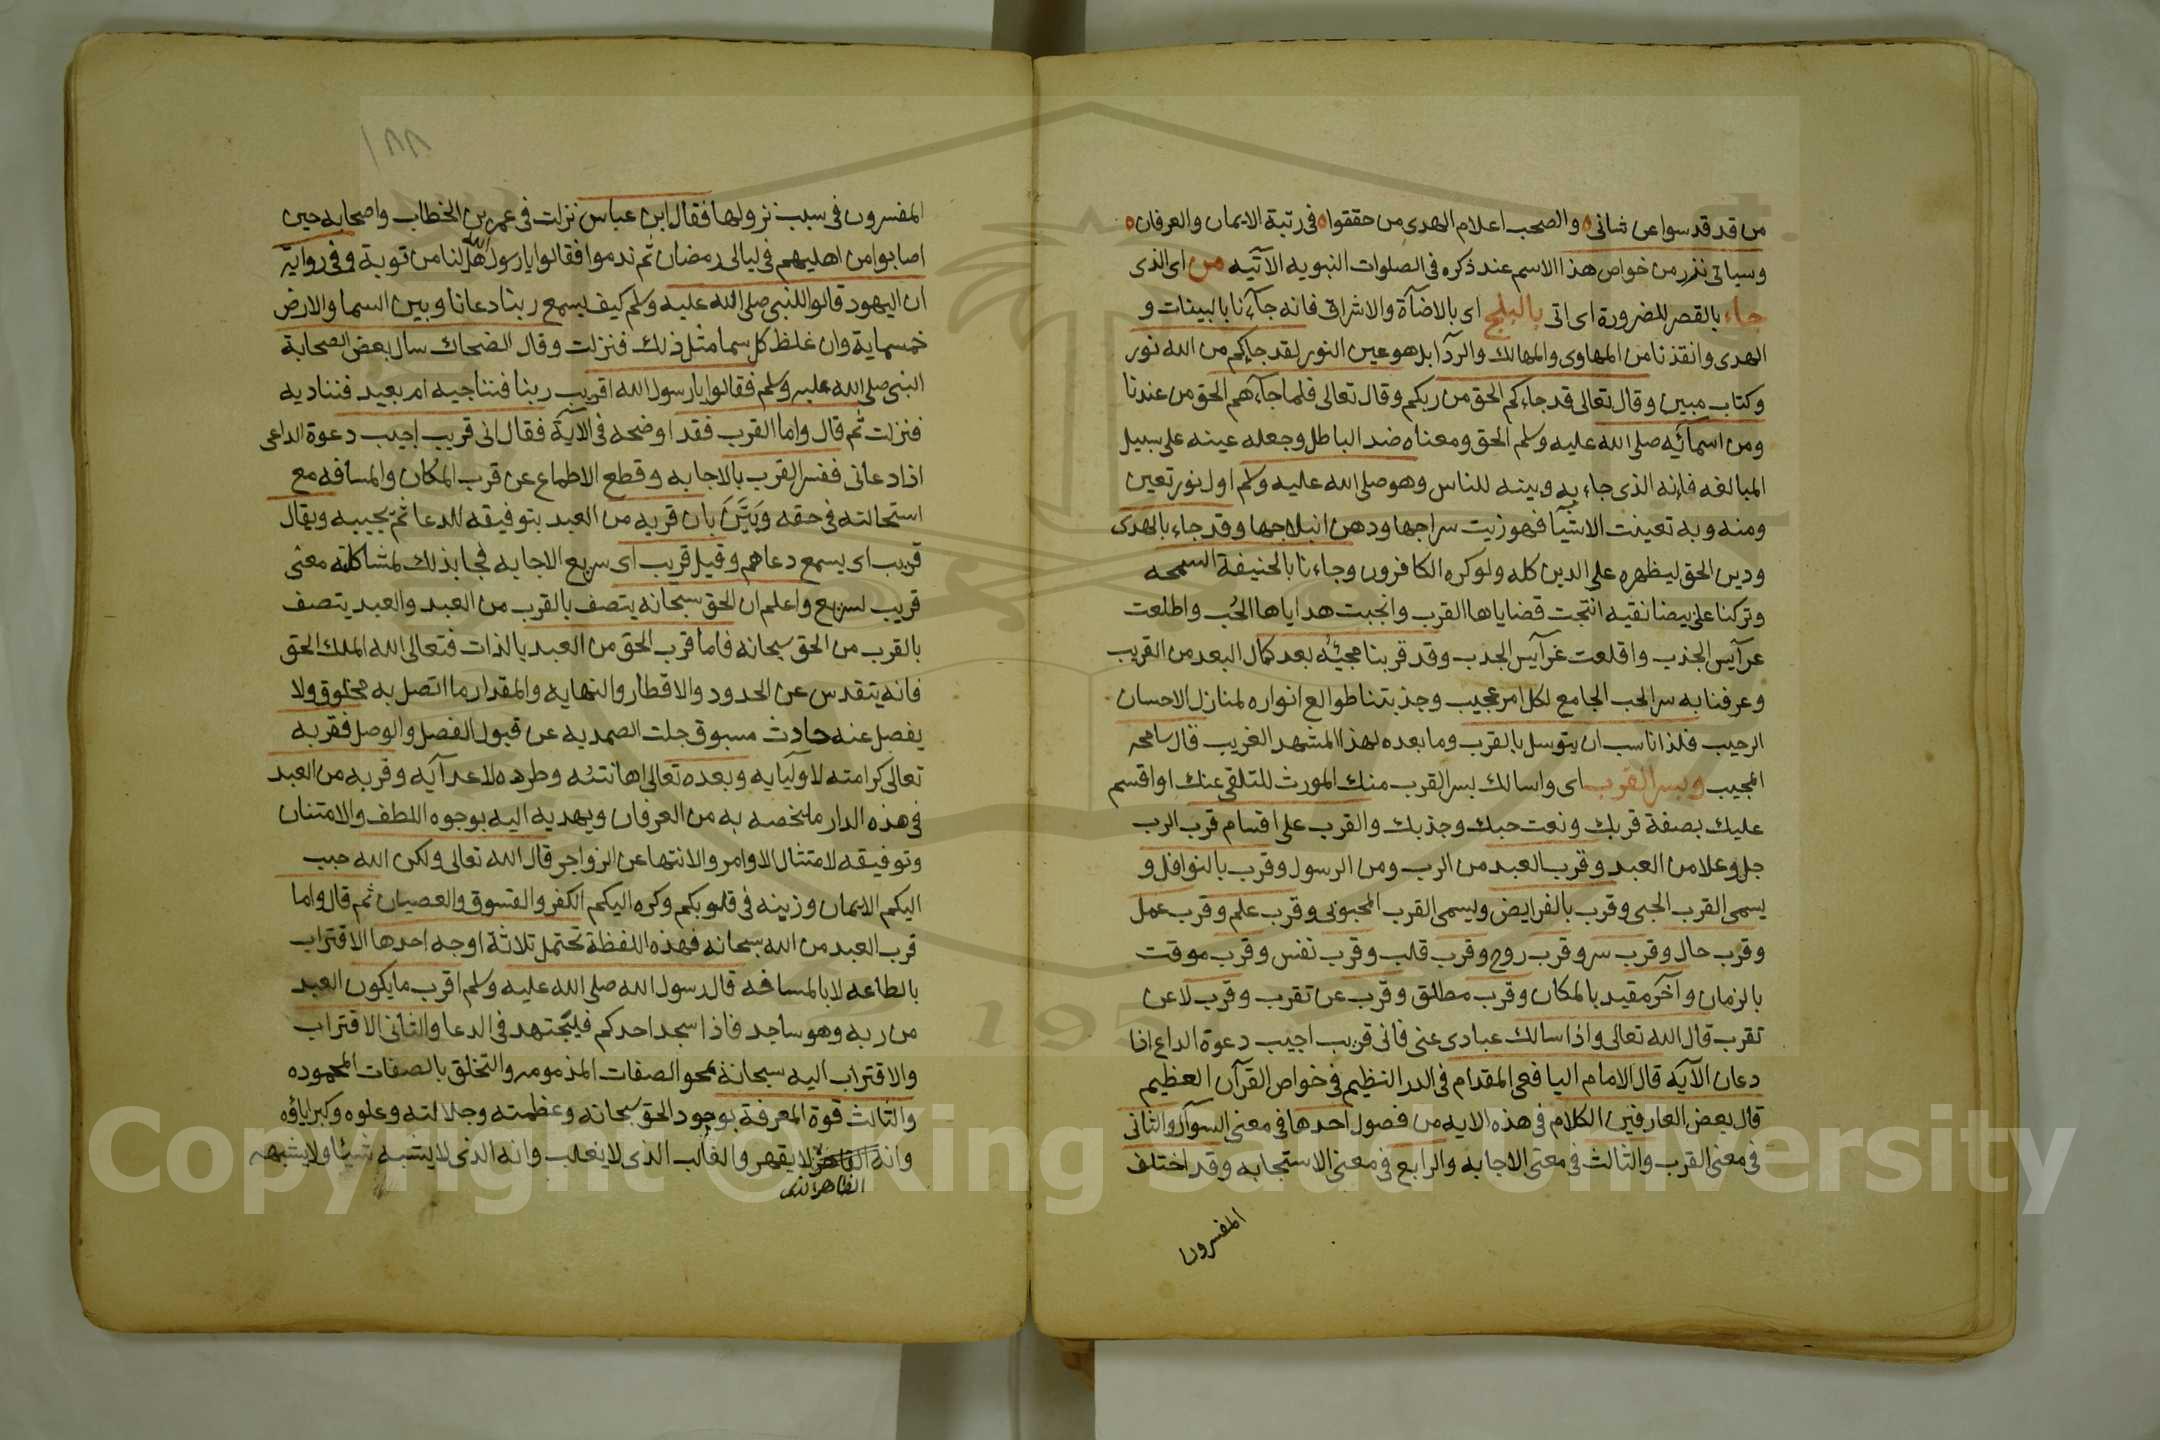 من قد قد سوا عن شانى ه والصحب اعلام الهدى من حققوا ه فى رتبة الايمان والعرفان ه
وسياتى نذر من خواص هذا الاسم عند ذكره فى الصلوات النبويه الآتيه من اى الذى
جاء بالقصر للضرورة اى اتى بالبلج اى بالاضآة والاشراق فانه جآءنا بالبينات و
الهدى وانقذنا من المهاوى والمهالك والردآ بل هو عين النور لقد جاءكم من الله نور
وكتاب مبين وقال تعالى قد جاءكم الحق من ربكم وقال تعالى فلما جآءهم الحق من عندنا
ومن اسمآئه صلى الله عليه وسلم الحق ومعناه ضد الباطل وجعله عينه على سبيل
المبالغه فانه الذى جاء به وبينه للناس وهو صلى الله عليه وسلم اول نور تعين
ومنه وبه تعينت الاشيآ فهو زيت سراجها ودهن انبلاجها وقد جاء بالهدى
ودين الحق ليظهره على الدين كله ولو كره الكافرون وجاءنا بالحنيفة السمحه
وتركنا على بيضا نقيه انتجت قضاياها القرب وانجبت هداياها الحب واطلعت
عرآيس الجذب واقلعت غرآيس الجدب وقد قربنا مجيئه بعد كمال البعد من القريب
وعرفنا به سر الحب الجامع لكل امر عجيب وجذبتنا طوالع انواره لمنازل الاحسان
الرحيب فلذا ناسب ان يتوسل بالقرب وما بعده لهذا المشهد الغريب قال سامحه
المجيب وبسر القرب اى واسالك بسر القرب منك المورث للتلقى عنك او اقسم
عليك بصفة قربك ونعت حبك وجذبك والقرب على اقسام قرب الرب
جل وعلا من العبد وقرب العبد من الرب ومن الرسول وقرب بالنوافل و
يسمى القرب الحبى وقرب بالفرايض ويسمى القرب المحبوبى وقرب علم وقرب عمل
وقرب حال وقرب سر وقرب روح وقرب قلب وقرب نفس وقرب موقت
بالزمان وآخر مقيد بالمكان وقرب مطلق وقرب عن تقرب وقرب لا عن
تقرب قال الله تعالى واذا سالك عبادى عنى فانى قريب اجيب دعوة الداع اذا
دعان الآيه قال الامام اليافعى المقدام فى الدر النظيم فى خواص القرآن العظيم
قال بعض العارفين الكلام فى هذه الايه من فصول احدها فى معنى السوآل والثانى
فى معنى القرب والثالث فى معنى الاجابه والرابع فى معنى الاستجابه وقد اختلف
المفسرون
١٨٨
المفسرون فى سبب نزولها فقال ابن عباس نزلت فى عمر بن الخطاب واصحابه حين
اصابوا من اهليهم فى ليالى رمضان ثم ندموا فقالوا يا رسول الله هل لنا من توبة وفى رواية
ان اليهود قالوا للنبى صلى الله عليه وسلم كيف يسمع ربنا دعانا وبين السما والارض
خمسماية وان غلظ كل سما مثل ذلك فنزلت وقال الضحاك سال بعض الصحابة
النبى صلى الله عليه وسلم فقالوا يا رسول الله اقريب ربنا فنناجيه ام بعيد فنناديه
فنزلت ثم قال واما القرب فقد اوضحه فى الآية فقال انى قريب اجيب دعوة الداعى
اذا دعانى ففسر القرب بالاجابه وقطع الاطماع عن قرب المكان والمسافه مع
استحالته فى حقه وبَيَّنَ بان قربه من العبد بتوفيقه للدعا ثم يجيبه ويقال
قريب اى يسمع دعاهم وقيل قريب اى سريع الاجابه فجا بذلك لمشاكلته معنى
قريب لسريع واعلم ان الحق سبحانه يتصف بالقرب من العبد والعبد يتصف
بالقرب من الحق سبحانه فاما قرب الحق من العبد بالذات فتعالى الله الملك الحق
فانه يتقدس عن الحدود والاقطار والنهايه والمقدار ما اتصل به مخلوق ولا
يفصل عنه حادث مسبوق جلت الصمديه عن قبول الفصل والوصل فقربه
تعالى كرامته لاوليايه وبعده تعالى اهانته وطرده لاعدآيه وقربه من العبد
فى هذه الدار ما يخصه به من العرفان ويهديه اليه بوجوه اللطف والامتنان
وتوفيقه لامتثال الاوامر والانتها عن الزواجر قال الله تعالى ولكن الله حبب
اليكم الايمان وزينه فى قلوبكم وكره اليكم الكفر والفسوق والعصيان ثم قال واما
قرب العبد من الله سبحانه فهذه اللفظة تحتمل ثلاثة اوجه احدها الاقتراب
بالطاعه لا بالمسافه قال رسول الله صلى الله عليه وسلم اقرب ما يكون العبد
من ربه وهو ساجد فاذا سجد احدكم فليجتهد فى الدعا والثانى الاقتراب
والاقتراب اليه سبحانه بمحو الصفات المذمومه والتخلق بالصفات المحموده
والثالث قوة المعرفة بوجود الحق سبحانه وعظمته وجلالته وعلوه وكبرياؤه
وانه لا يقهر والغالب الذى لا يغلب وانه الذى لا يشبه شيئا ولا يشبهه
القاهر الذى
Copyright © King Saud University
1957